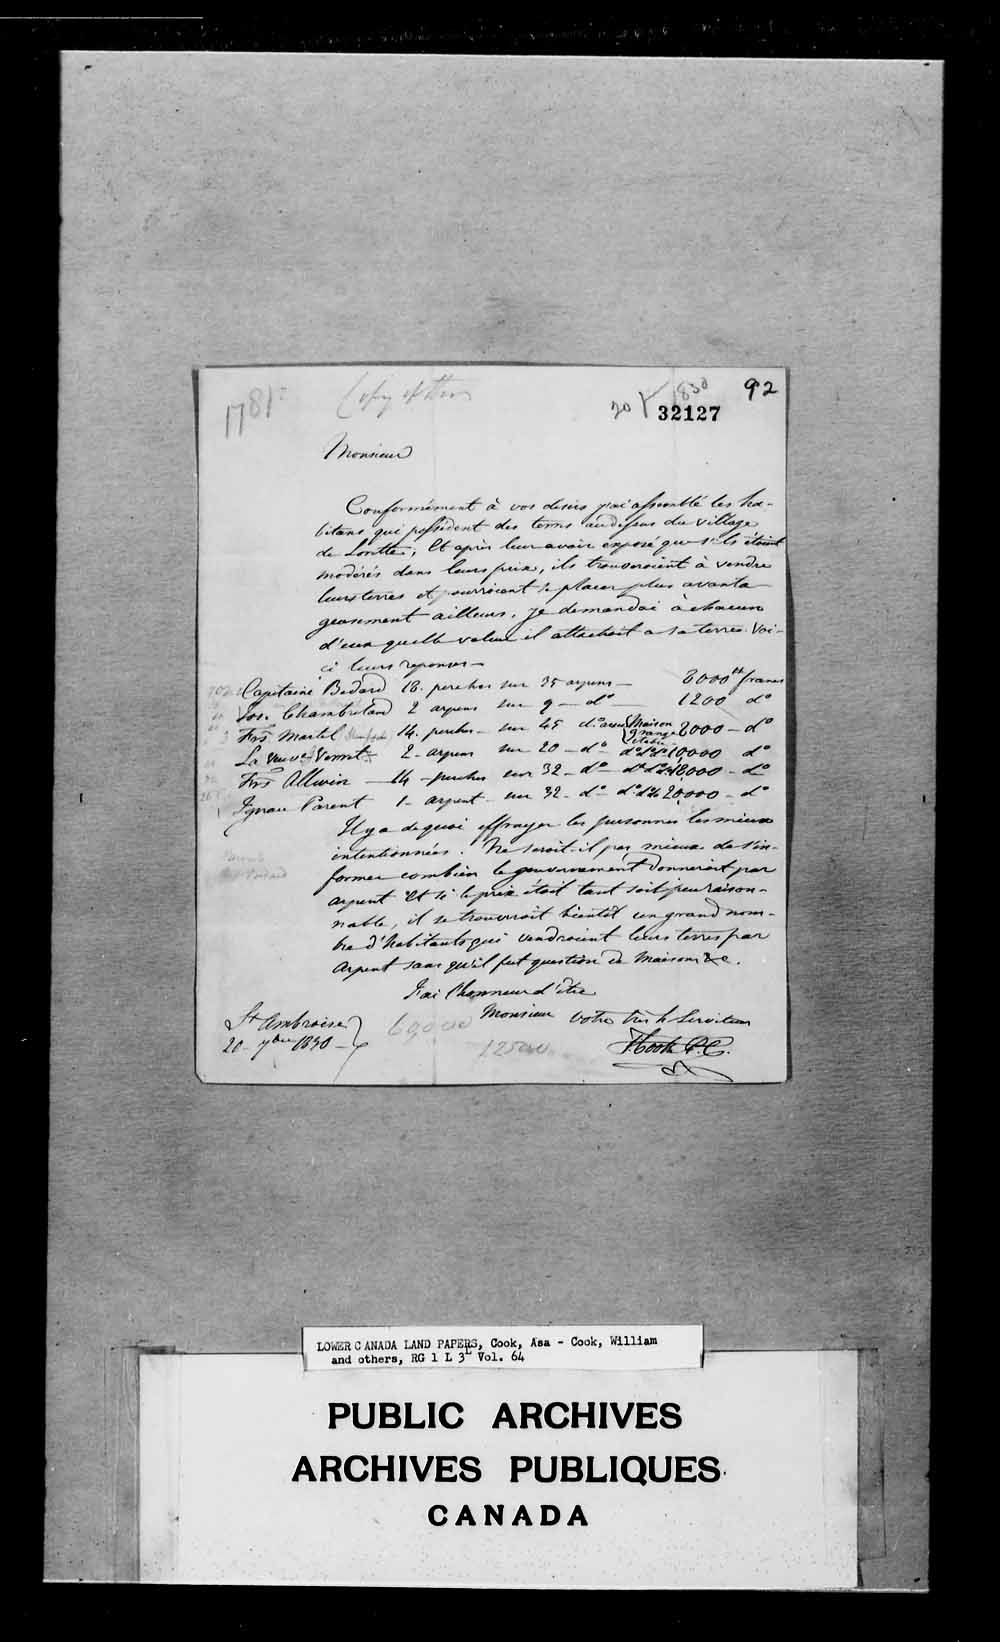 1781
Copy of
20 1830 92
32127
Monsieur
Conformément à vos desirs j'ai assemblé les ha-
bitans qui possèdent des terres audessus du village
de Lorette; Et après leur avoir exposé que s'ils étoient
modérés dans leurs prix, ils trouveroient à vendre
leurs terres et pourroient se placer plus avanta
geusement ailleurs. Je demandai à chacun
d'eux quelle valeur il attachoit a sa terre. Voi-
ci leurs reponses —
Capitaine Bedard 18. perches sur 35 arpens — 8000 francs
Jos. Chambreland 2 arpens sur 9 — do 1200 do
Frs Martel 14. perches — sur 45 do avec Maison grange étable 8000 — do
La Veuve Verret 2 — arpens sur 20 — do do do do 10000 do
Frs Allwin — 14 — perches sur 32 — do — do do do 18,000 — do
Ignace Parent 1 — arpent — sur 32 — do — do do do 20,000 — do
Il y a de quoi effrayer les personnes les mieux
intentionnées. Ne seroit-il pas mieux de s'in-
former combien le gouvernement donneroit par
arpent et si le prix étoit tant soit peu raison-
nable, il se trouveroit bientôt un grand nom-
bre d'habitants qui vendroient leurs terres par
arpent sans qu'il fut question de Maisons &c.
J'ai l'honneur d'être
Monsieur votre très h. Serviteur
St Ambroise
20 — 7bre 1830 —
60,000
125000
T. Cook P.C.
LOWER CANADA LAND PAPERS, Cook, Asa - Cook, William
and others, RG 1 L 3L Vol. 64
PUBLIC ARCHIVES
ARCHIVES PUBLIQUES
CANADA